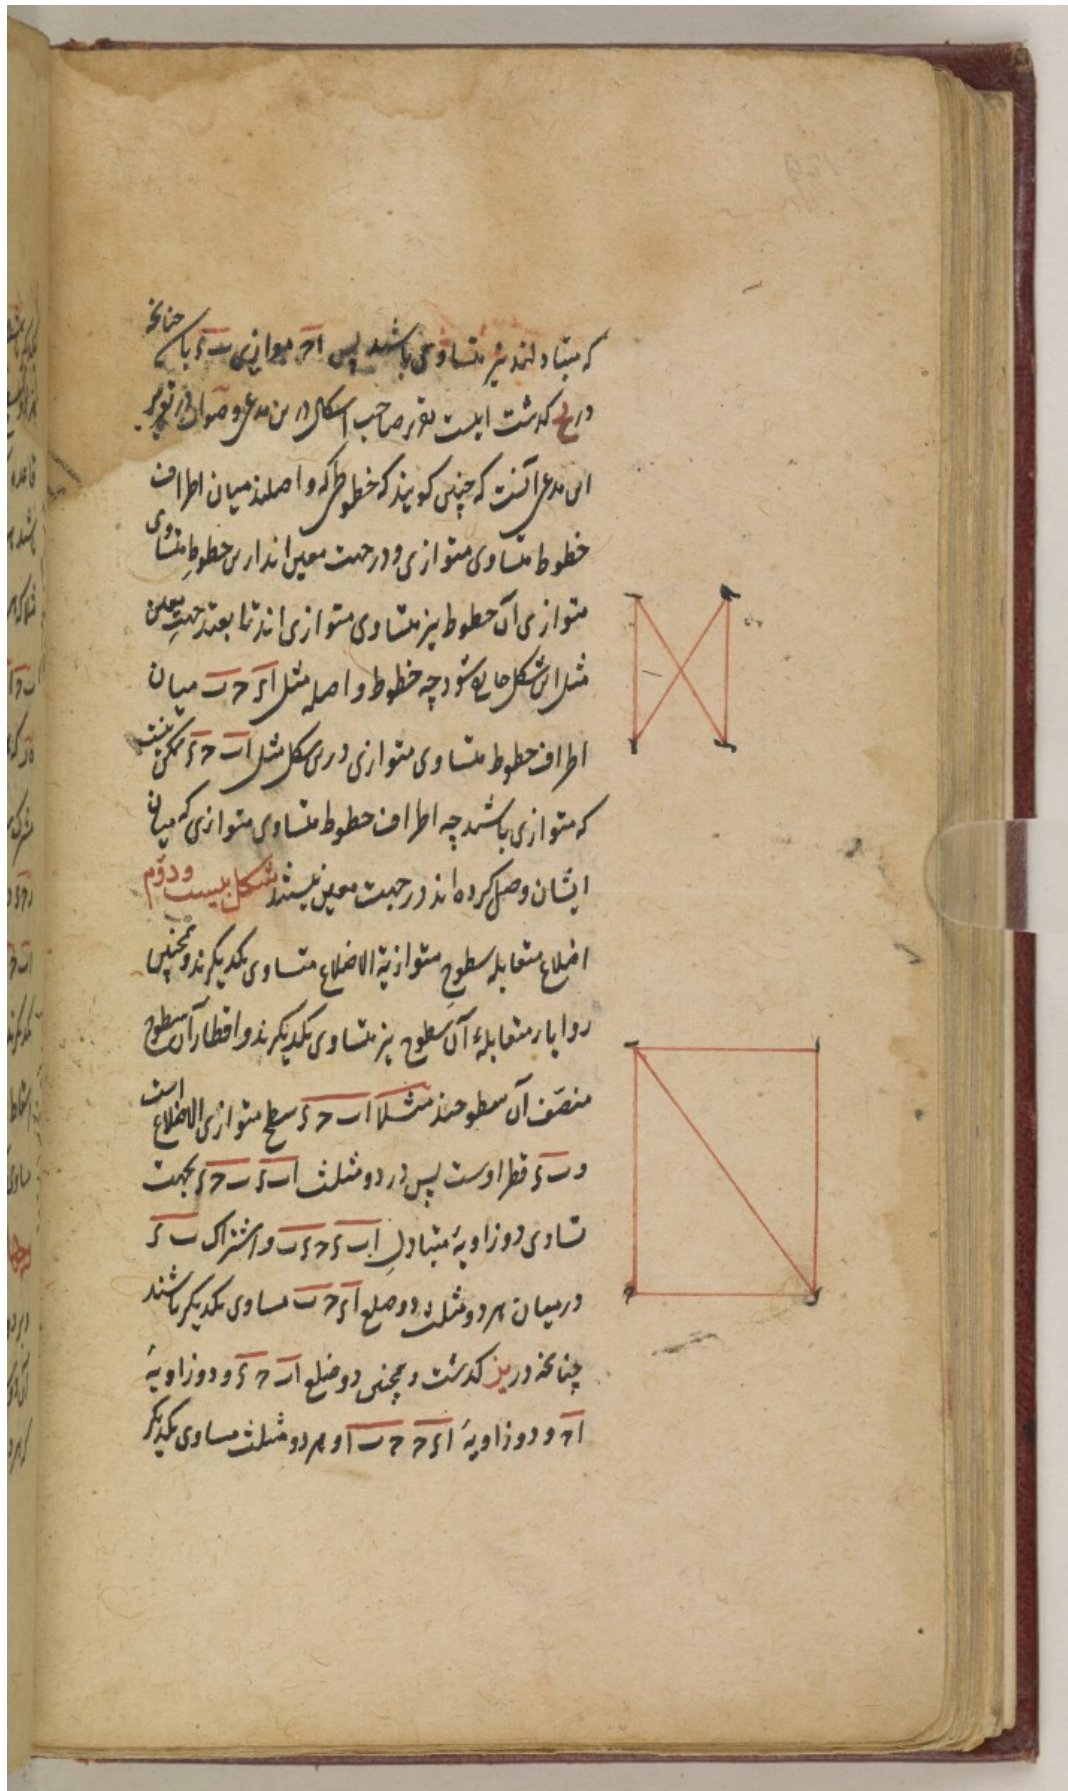 که متبادلند نیز متساوی باشند پس اح موازی ب‌ء باشد چنانچه
در ح گذشت اینست تقریر صاحب اشکال درین مدعی و صواب در تقریر
این مدعی آنست که چنین گویند که خطوطی که واصلند میان اطراف
خطوط متساوی متوازی و در جهت معین اند ازین خطوط متساوی
متوازی آن خطوط نیز متساوی متوازی اند تا بعتد جهت معین
مثل این شکل خارج شود چه خطوط واصله مثل اء ح‌ب میان
اطراف خطوط متساوی متوازی درین شکل مثل اب ح‌ء ممکن نیست
که متوازی باشند چه اطراف خطوط متساوی متوازی که میان
ایشان وصل کرده اند در جهت معین نیستند شکل بیست و دوم
اضلاع متقابله سطوح متوازیة الاضلاع متساوی یکدیگرند و همچنین
زوایاء متقابلهٔ آن سطوح نیز متساوی یکدیگرند و اقطار آن سطوح
منصّف آن سطوحند مثلا اب ح‌ء سطح متوازی الاضلاع است
و ب‌ء قطر اوست پس در دو مثلث اب‌ء ب‌ح‌ء بجهت
تساوی دو زاویهٔ متبادلِ اب‌ء ح‌ءب و اشتراک ب‌ء
در میان هر دو مثلث دو ضلع اء ح‌ب مساوی یکدیگر باشند
چنانچه در یز گذشت و همچنین دو ضلع اب ح‌ء و دو زاویهٔ
اح و دو زاویهٔ اءح ح‌ب‌ا و هر دو مثلث مساوی یکدیگر